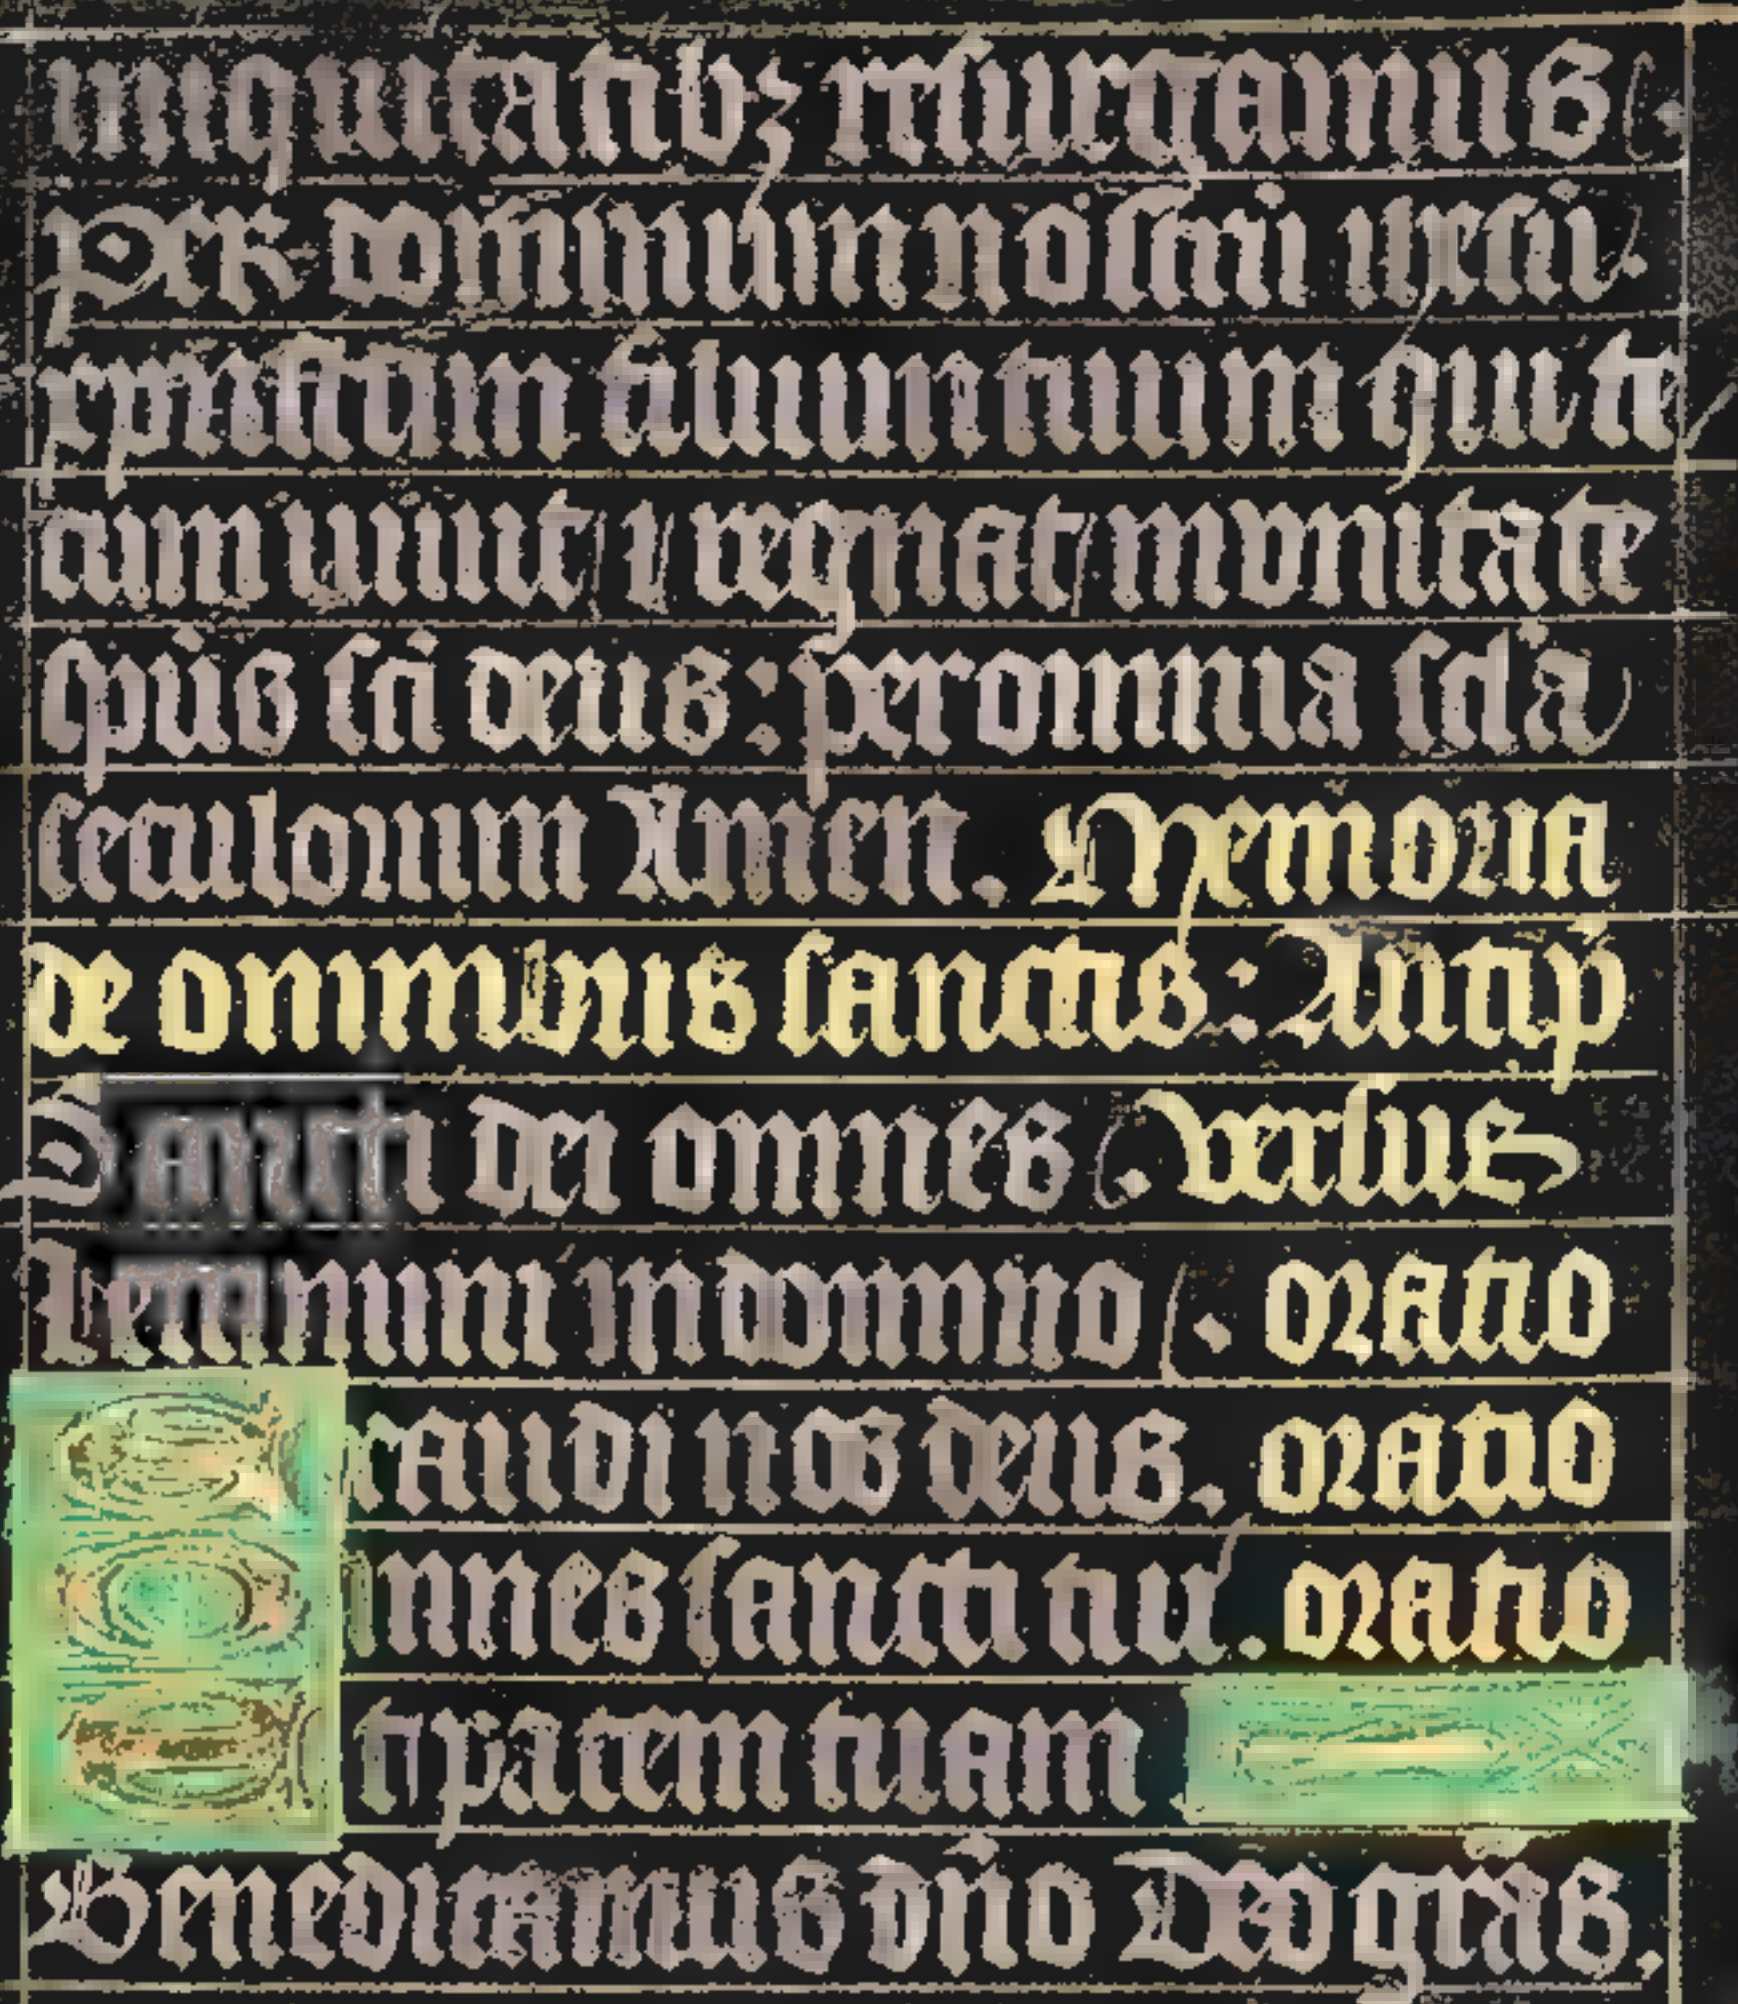 iniquitatibꝫ resurgamus.
Per dominum nostrū ihesū.
xpristum filiuum tuum qui te
cum uiuit ⁊ regnat in vnitate
spūs sci deus: per omnia scla
seculorum Amen. Memoria
de omnibus sanctis: Antip̄
Sancti dei omnes. versus
Letamini in domino. oratio
xaudi nos deus. oratio
mnes sancti tui. oratio
t pacem tuam
Benedicamus dn̄o Deo grās.